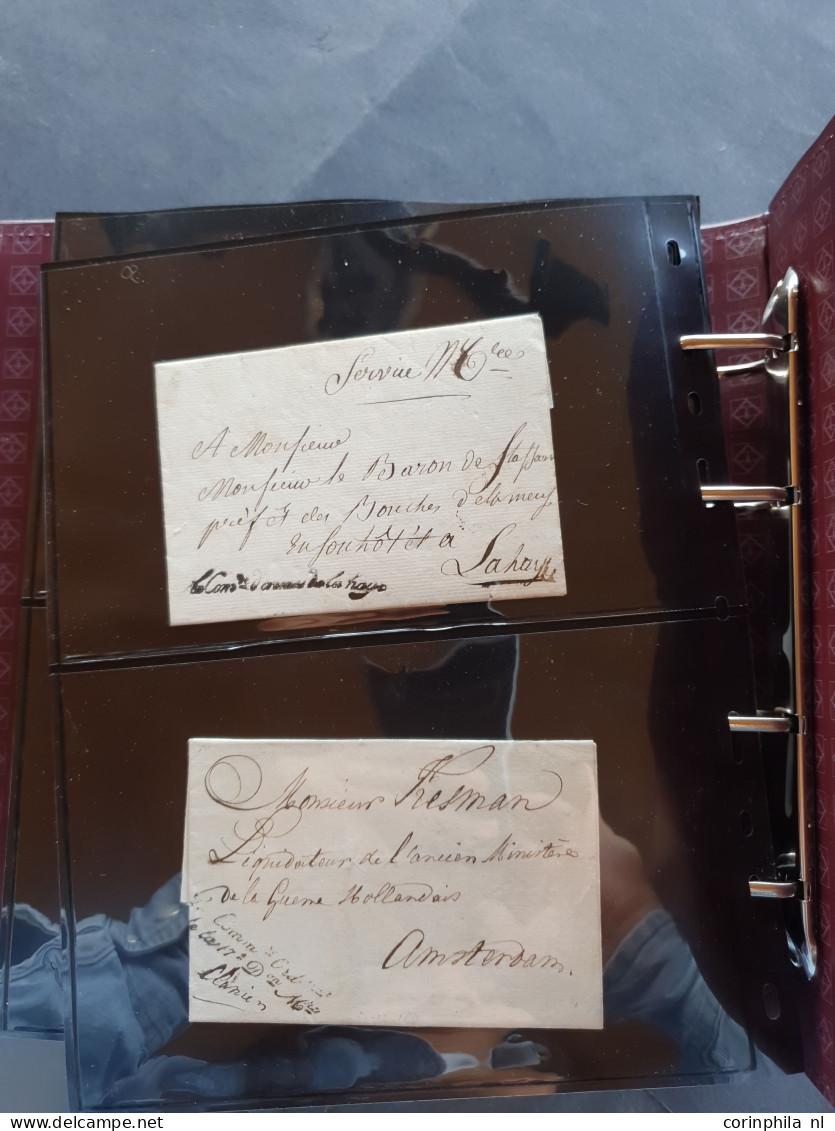 Service Mre
A Monsieur
Monsieur le Baron de Stassart
préfet des Bouches de la meuse
en son hôtel à
La haye
de la haye
Monsieur Kesman
Liquidateur de l'ancien Ministère
de la Guerre Hollandais
Amsterdam.
Comm.re Ord.
de la 17e Don Mre
corinphila nl